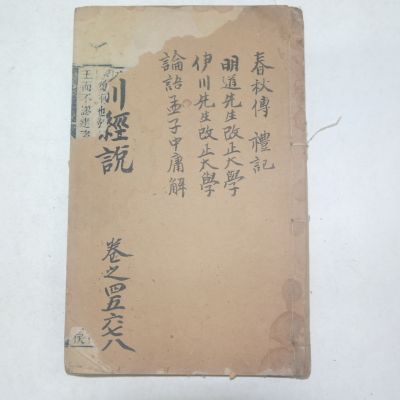 春秋傳 禮記
明道先生改正大學
伊川先生改正大學
論語孟子中庸解
川經說
卷之四五六七八
王而不認達